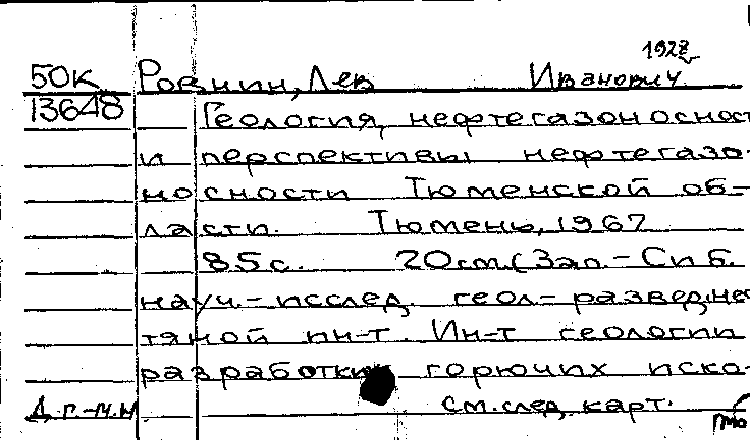 1928
50К Ровнин, Лев Иванович.
13648 Геология, нефтегазоносност
и перспективы нефтегазо-
носности Тюменской об-
ласти. Тюмень, 1967
85с. 20см (Зап.-Сиб.
науч.-исслед. геол-развед.не
тяной ин-т. Ин-т геологии
разработки горючих иско-
Д.г.-м.н см.след карт.